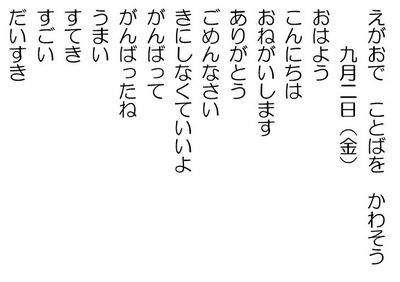 えがおで　ことばを　かわそう
九月二日（金）
おはよう
こんにちは
おねがいします
ありがとう
ごめんなさい
きにしなくていいよ
がんばって
がんばったね
うまい
すてき
すごい
だいすき